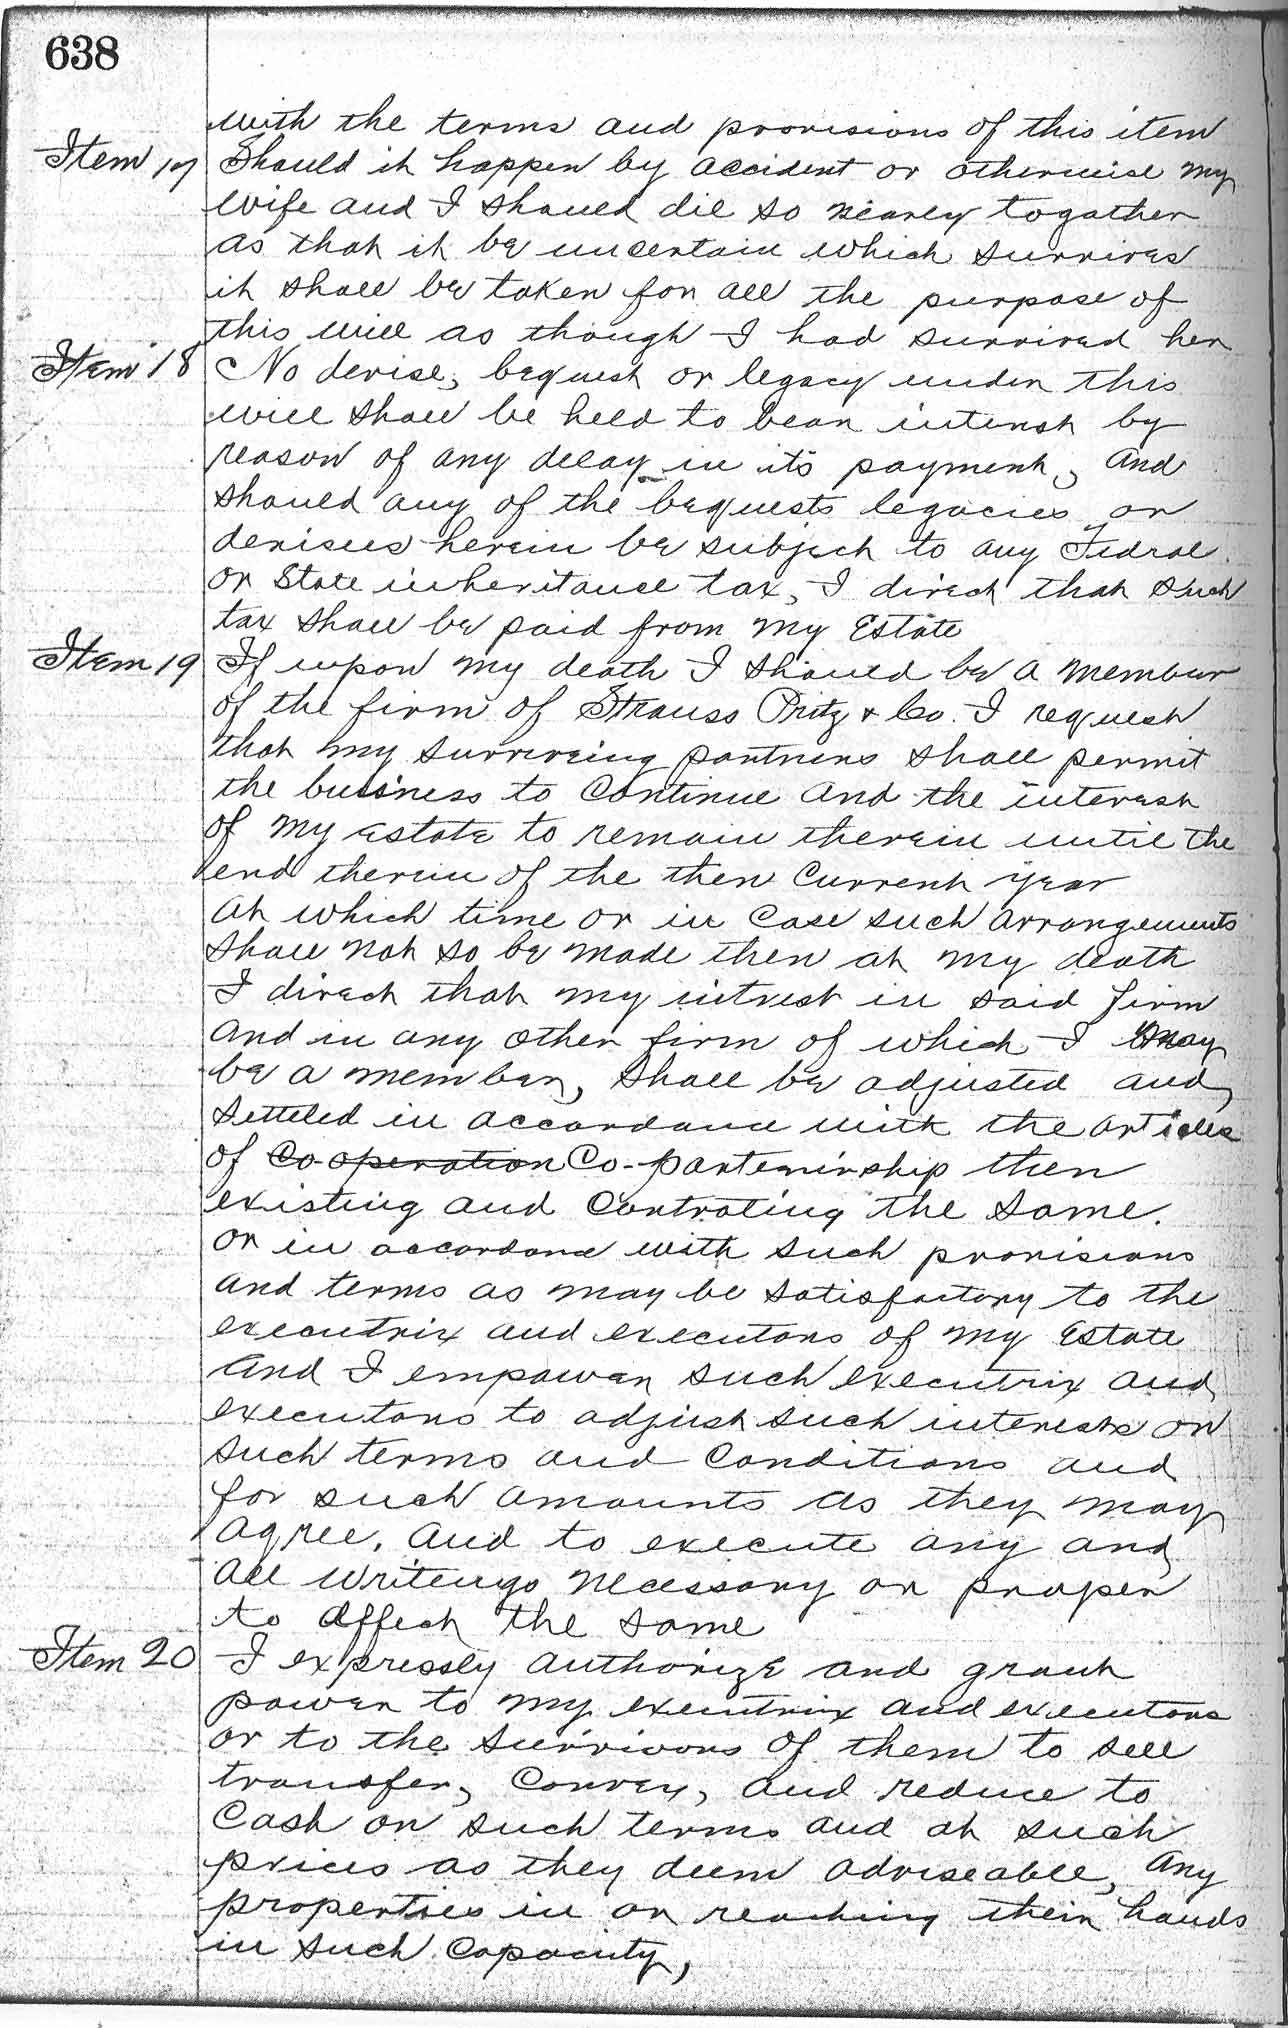 638
with the terms and provisions of this item
Item 17 Should it happen by accident or otherwise my
wife and I should die so nearly togather
as that it be uncertain which survives
it shall be taken for all the purpose of
this will as though I had survived her
Item 18 No devise, bequest or legacy under this
will shall be held to bear intrest by
reason of any delay in its payment, and
should any of the bequests legacies or
devises herein be subject to any Fedral
or State inheritance tax, I direct that such
tax shall be paid from my Estate
Item 19 If upon my death I should be a member
of the firm of Strauss Pritz & Co. I request
that my surviveing partners shall permit
the business to continue and the interest
of my estate to remain therein until the
end therein of the then current year
at which time or in case such arrangements
shall not so be made then at my death
I direct that my intrest in said firm
and in any other firm of which I may
be a member, shall be adjusted and
settled in accordance with the articles
of Co-operation Co-partenirship then
existing and controling the same.
or in accordance with such provisions
and terms as may be satisfactory to the
executrix and executors of my Estate
and I empower such executrix and
executors to adjust such interests on
such terms and conditions and
for such amounts as they may
agree, and to execute any and
all writeings necessary or proper
to affect the same
Item 20 I expressly authorize and grant
power to my executrix and executors
or to the survivors of them to sell
transfer, convey, and reduce to
cash on such terms and at such
prices as they deem adviseable, any
properties in or reaching their hands
in such capacity,